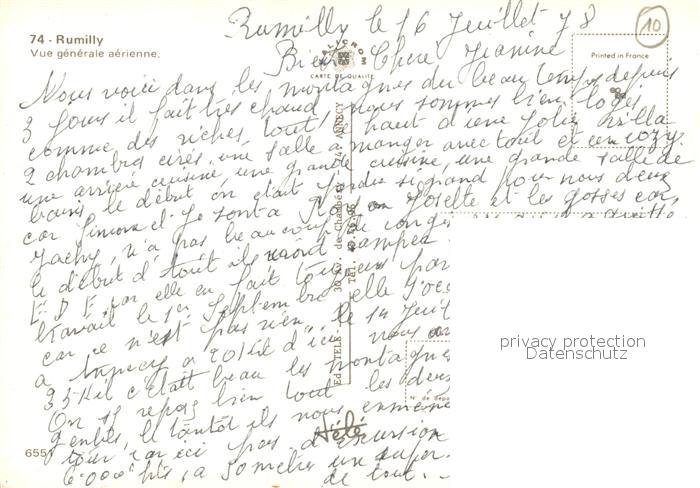 74 - Rumilly
Vue générale aérienne.
POLYCROM
CARTE DE QUALITÉ
Printed in France
10
Rumilly le 16 Juillet 78
Bien Chère Jeanine
Nous voici dans les montagnes du beau temps depuis
3 jours il fait très chaud, nous sommes bien logés
comme des riches, tout haut d'une jolie villa
2 chambres cirés, une salle a manger avec tout et un cozy
une arrière cuisine une grande cuisine, une grande salle de
bains, le début on était perdu si grand pour nous deux
car Simone et Jo sont a Josette et les gosses car
Jacky, n'a pas beaucoup de congés
le début d'Août ils vont camper
E D F, car elle en fait toujours par
travail le 1er Septembre elle s'occ
car ce n'est pas rien, le 14 Juil
a Annecy a 20 Kil d'ici nous av
35 Kil c'était beau les montagnes
On se repose bien tout les deux
gentils, le tantôt ils nous emmène
tour car ici pas d'excursion
6.000 hts, a 50 mètres un super
de tout. -
Edi TELE - 30 Av. de Chambéry - 74 ANNECY
Tél.
Télé
N° de dépo
6551
privacy protection
Datenschutz